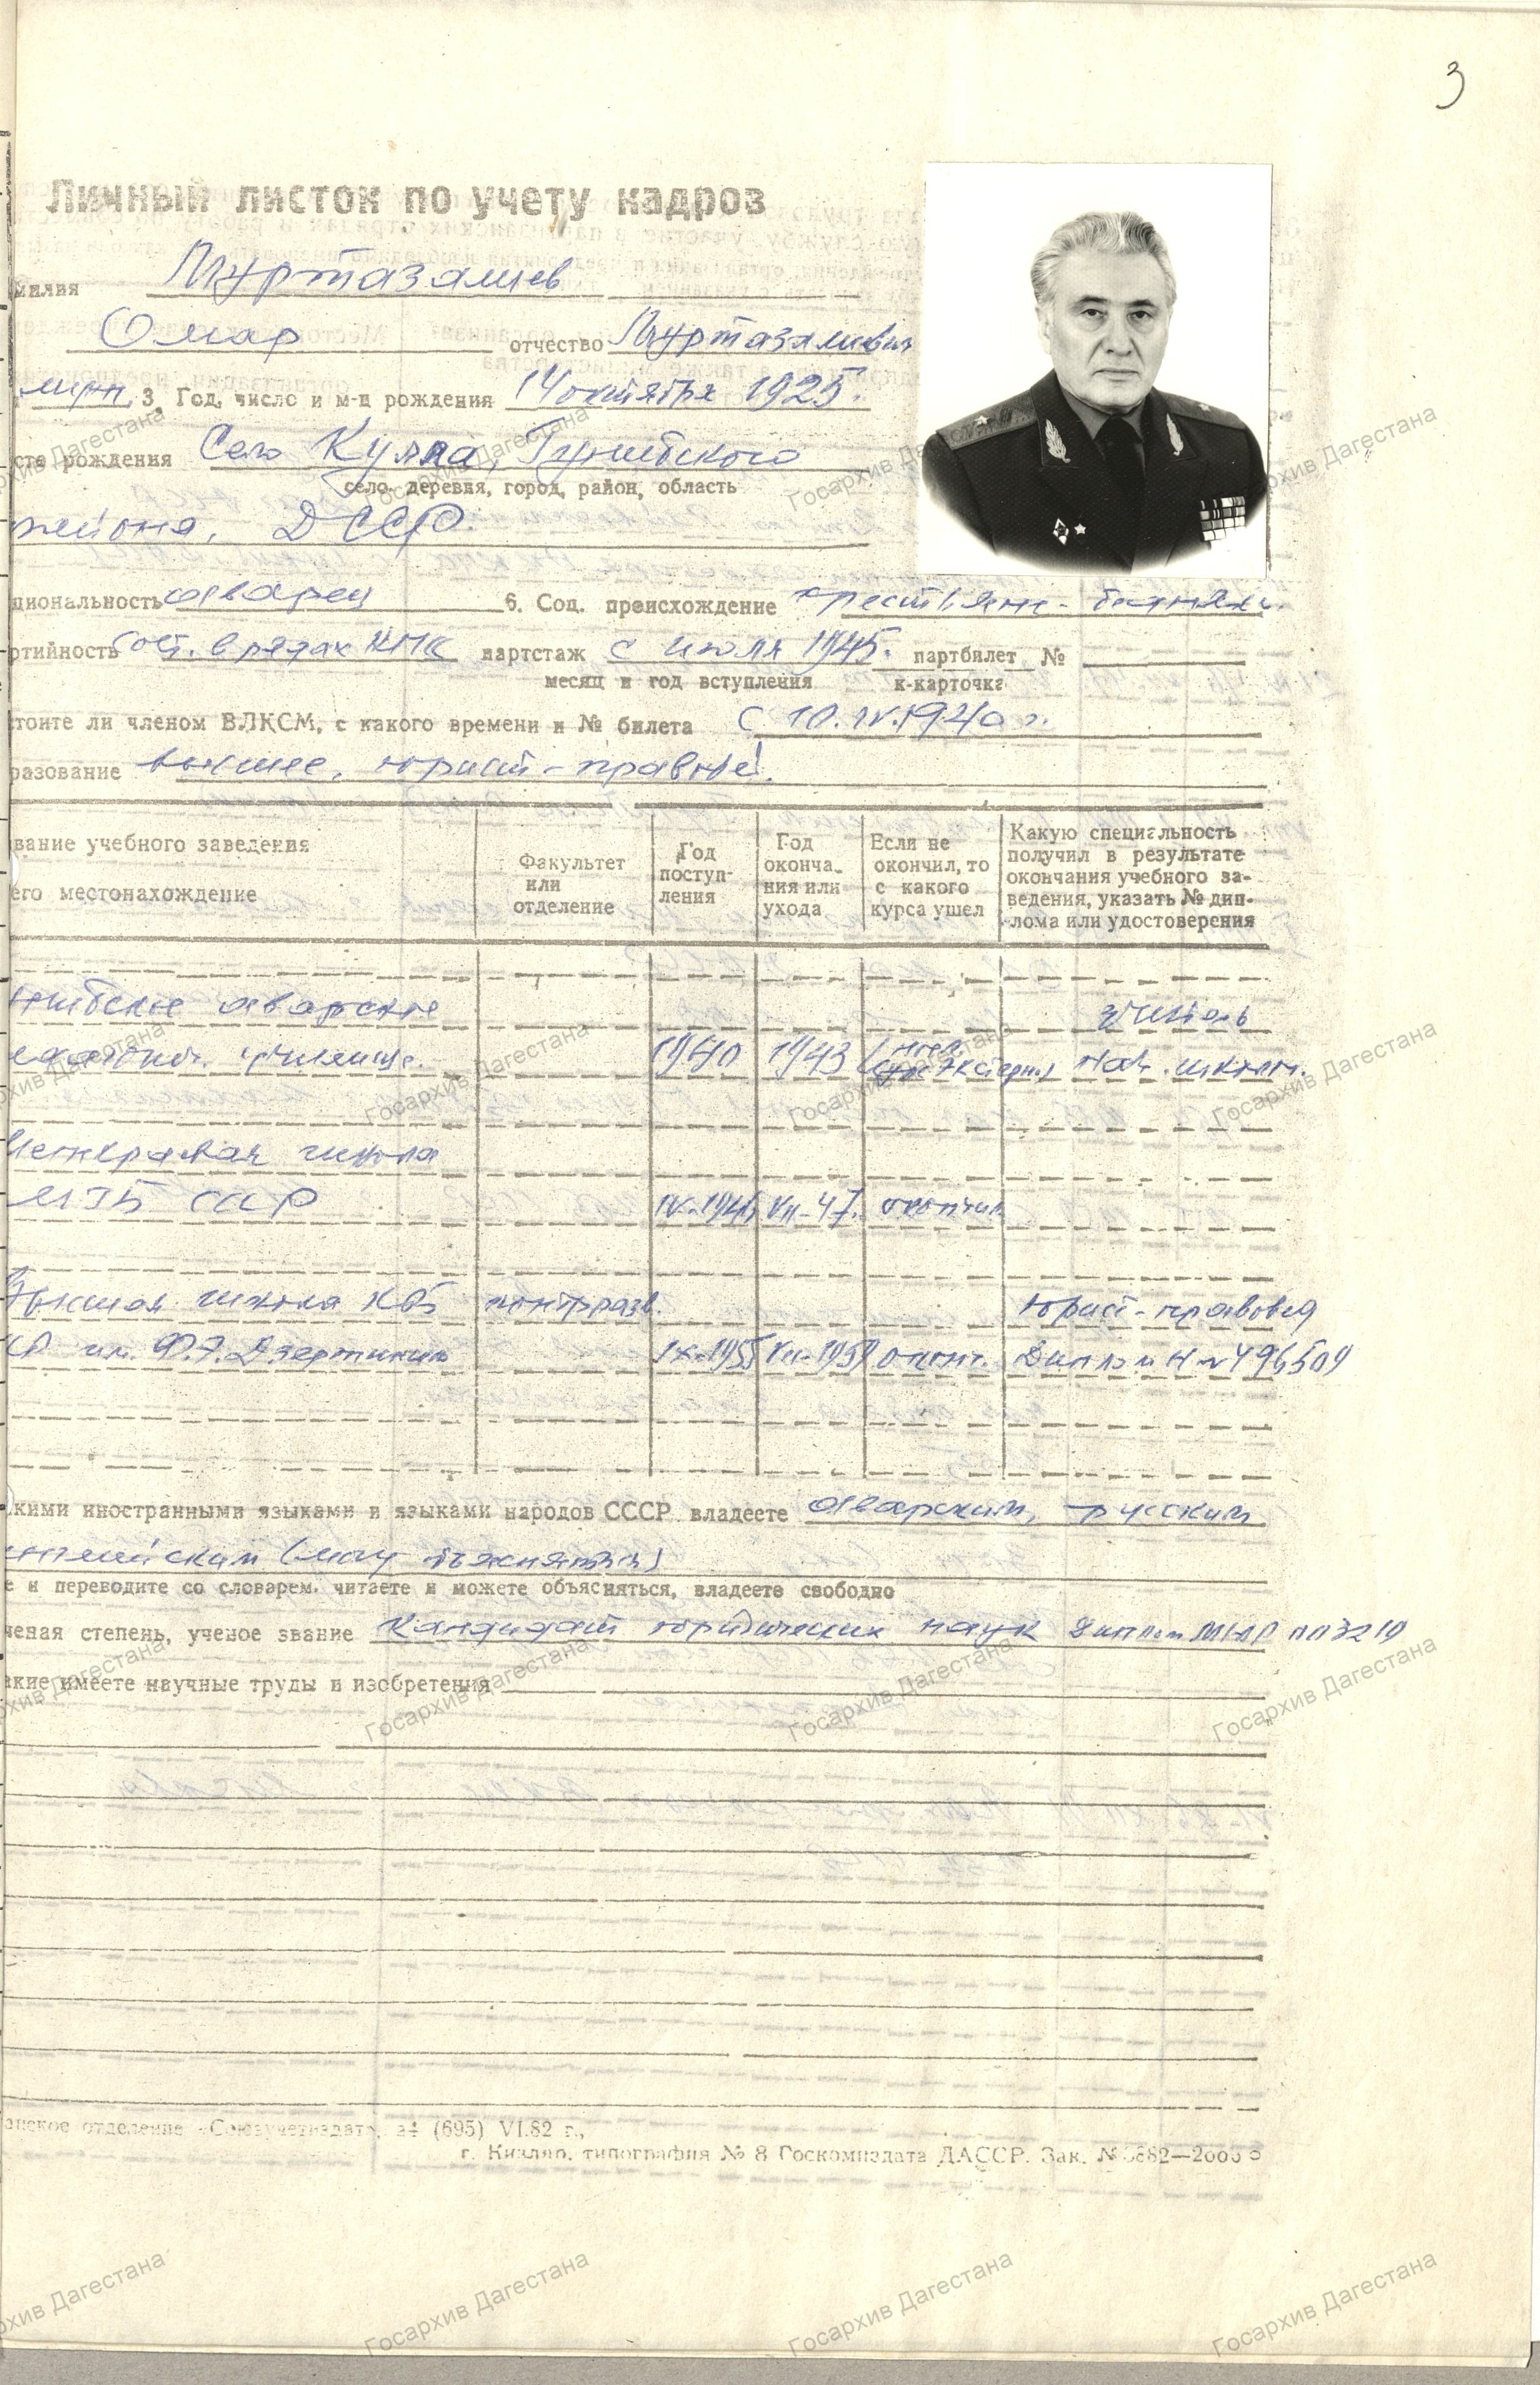 3
Личный листок по учету кадров
милия Муртазалиев
Омар отчество Муртазалиевич
муж. 3. Год, число и м-ц рождения 14 октября 1925.
сто рождения Село Кулла, Гунибского
село, деревня, город, район, область
района, ДССР.
циональность аварец 6. Соц. происхождение крестьяне-бедняки.
ртийность сост. в рядах КПСС партстаж с июля 1945. партбилет №
месяц и год вступления к-карточка
стоите ли членом ВЛКСМ, с какого времени и № билета с 10.IV.1940 г.
разование высшее, юрист-правовед.
вание учебного заведения
его местонахождение
Факультет или отделение
Год поступ-
ления
Год оконча-
ния или
ухода
Если не
окончил, то
с какого
курса ушел
Какую специальность
получил в результате
окончания учебного за-
ведения, указать № дип-
лома или удостоверения
нибское аварское учитель
училище. 1940 1943 экстерн.) нач. школы.
школа
МГБ СССР VII-47. окончил
Высшая школа КГБ контрразв. Юрист-правовед
им. Ф.Э. Дзержинского IX-1955 VII-1959 оконч. Диплом Н № 496509
кими иностранными языками и языками народов СССР владеете аварским, русским
английским (могу объясняться)
е и переводите со словарем, читаете и можете объясняться, владеете свободно
ченая степень, ученое звание Кандидат юридических наук Диплом
акие имеете научные труды и изобретения
анское отделение «Союзучетиздат», з4 (695) VI.82 г.,
г. Кизляр, типография № 8 Госкомиздата ДАССР. Зак.
Госархив Дагестана